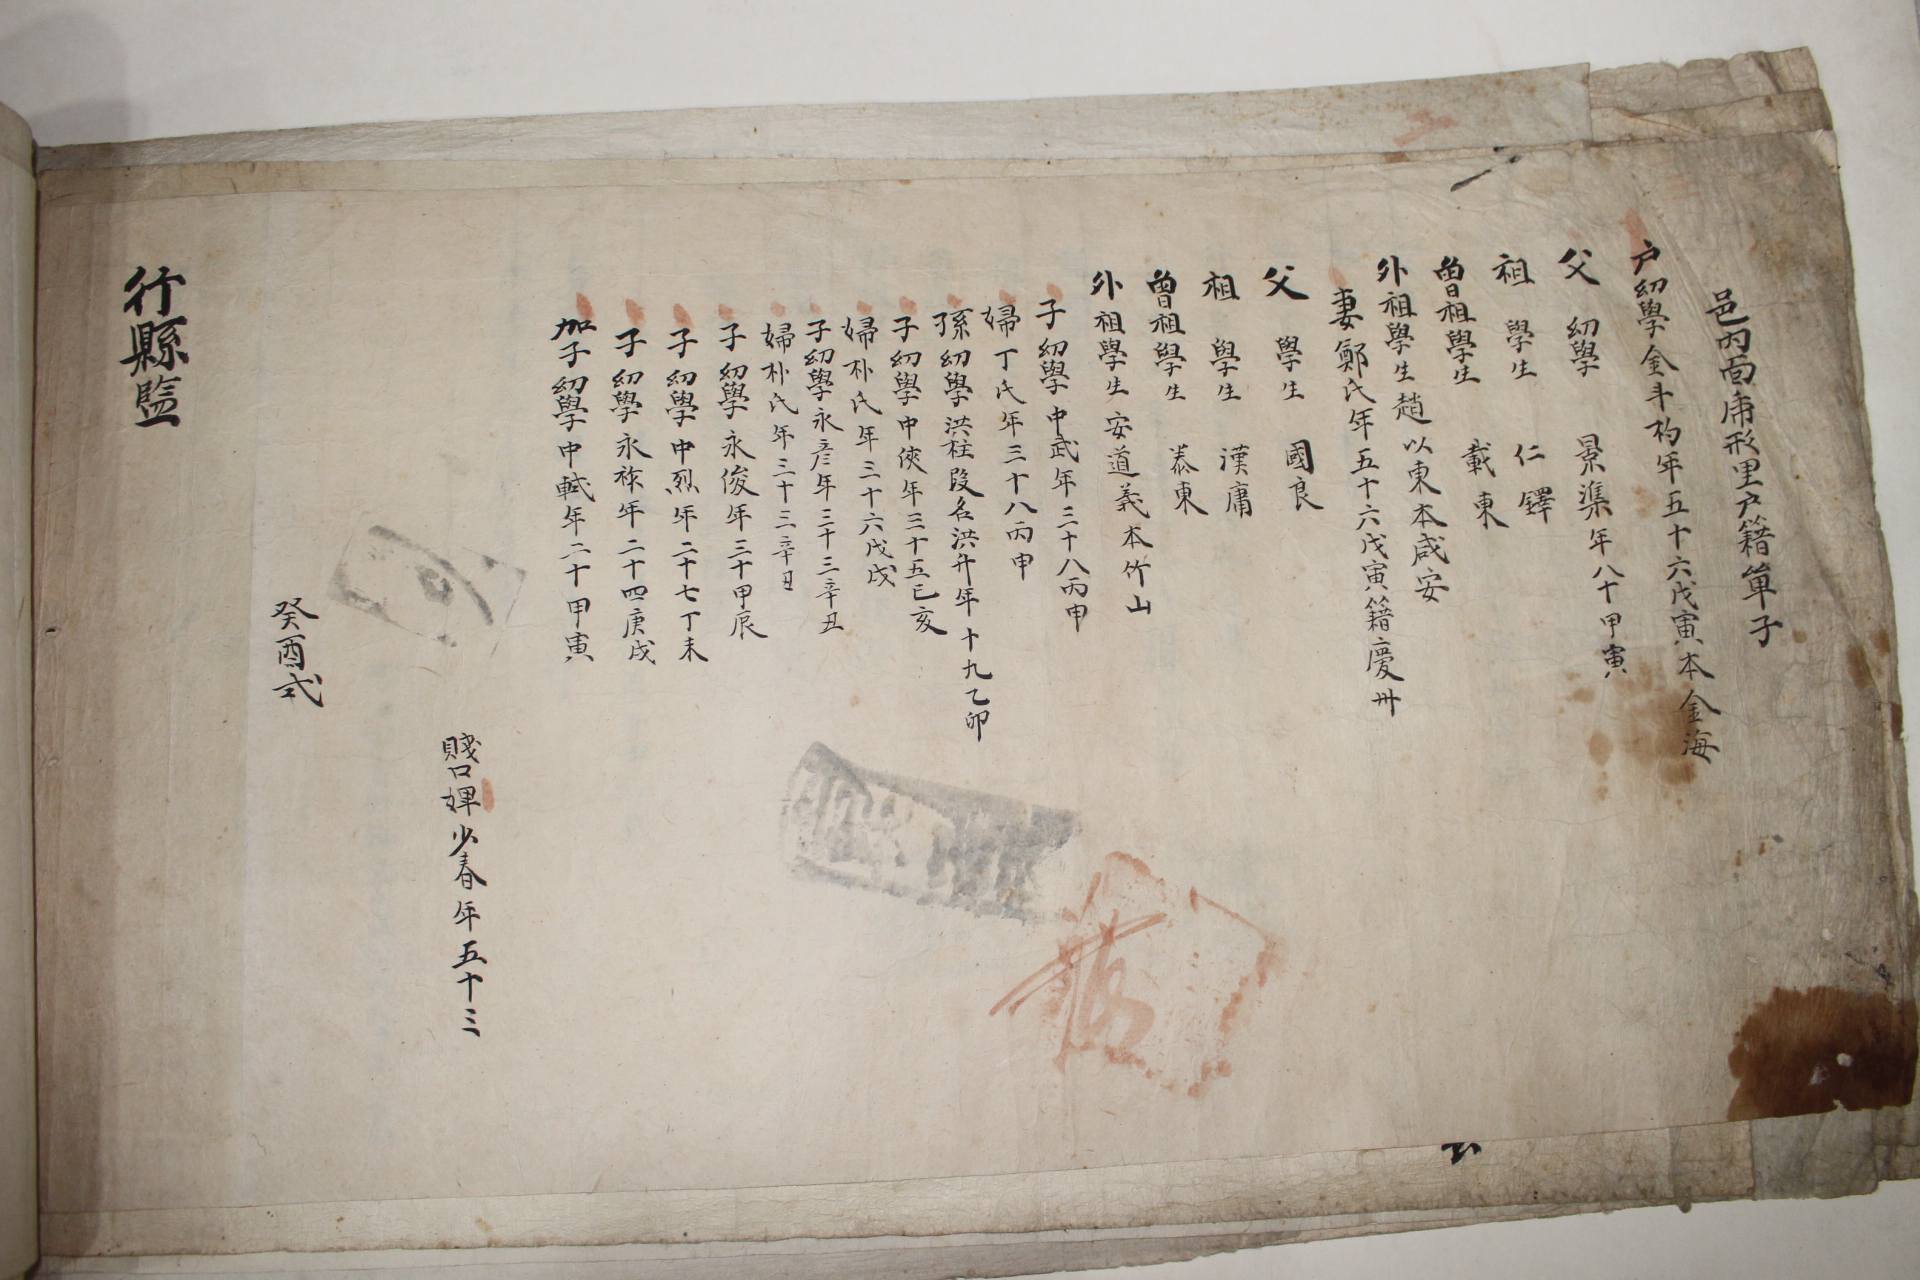 邑內面庸形里戶籍單子
戶幼學金斗杓年五十六戊寅本金海
父 幼學 景準年八十甲寅
祖 學生 仁鐸
曾祖學生 載東
外祖學生趙以東本咸安
妻鄭氏年五十六戊寅籍慶州
父 學生 國良
祖 學生 漢庸
曾祖學生 泰東
外祖學生安道義本竹山
子幼學中武年三十八丙申
婦丁氏年三十八丙申
孫幼學洪柱改名洪升年十九乙卯
子幼學中俠年三十五己亥
婦朴氏年三十六戊戌
子幼學永彦年三十三辛丑
婦朴氏年三十三辛丑
子幼學永俊年三十甲辰
子幼學中烈年二十七丁未
子幼學永祚年二十四庚戌
加子幼學中軾年二十甲寅
賤口婢少春年五十三
癸酉式
行縣監